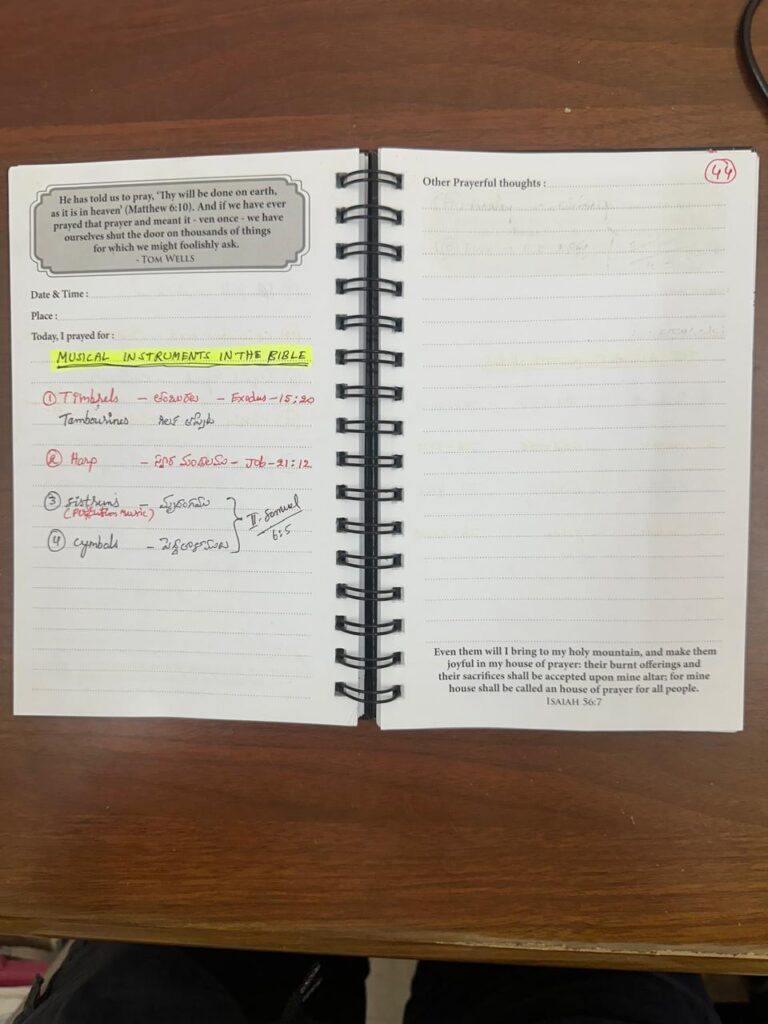 He has told us to pray, 'Thy will be done on earth,
as it is in heaven' (Matthew 6:10). And if we have ever
prayed that prayer and meant it - ven once - we have
ourselves shut the door on thousands of things
for which we might foolishly ask.
- TOM WELLS
Date & Time :
Place :
Today, I prayed for :
MUSICAL INSTRUMENTS IN THE BIBLE
① Timbrels - తంబురలు - Exodus - 15:20
Tambourines
② Harp - Job - 21:12
③ Sistrums - మృదంగము
(Percussion Music)
II. Samuel
6:5
④ Cymbals -
Other Prayerful thoughts :
44
Even them will I bring to my holy mountain, and make them
joyful in my house of prayer: their burnt offerings and
their sacrifices shall be accepted upon mine altar; for mine
house shall be called an house of prayer for all people.
ISAIAH 56:7